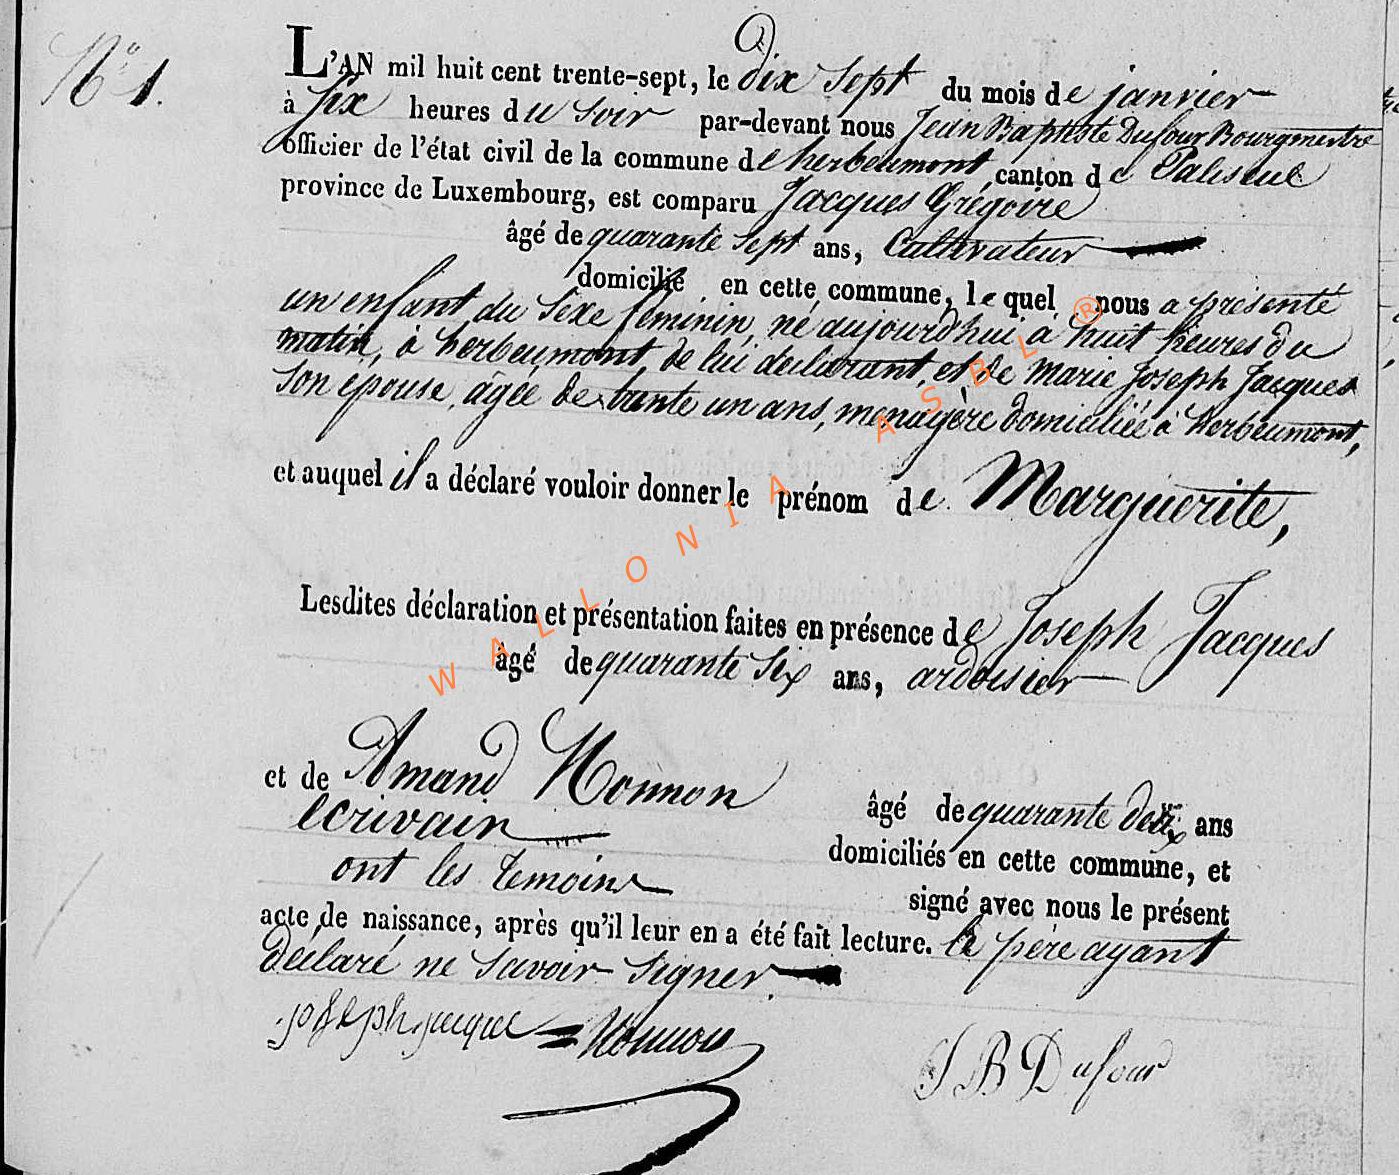 No 1.
L'AN mil huit cent trente-sept, le dix sept du mois de janvier
à six heures du soir par-devant nous Jean Baptiste Dufour Bourgmestre
officier de l'état civil de la commune de herbeumont, canton de Paliseul
province de Luxembourg, est comparu Jacques Grégoire
âgé de quarante sept ans, Cultivateur
domicilié en cette commune, lequel nous a présenté
un enfant du sexe féminin, né aujourd'hui à huit heures du
matin, à herbeumont, de lui déclarant, et de Marie Joseph Jacques
son épouse, âgée de trente un ans, menagère domiciliée à herbeumont,
et auquel il a déclaré vouloir donner le prénom de Marguerite,
Lesdites déclaration et présentation faites en présence de Joseph Jacques
âgé de quarante six ans, ardoisier
et de Amand Nonnon âgé de quarante deux ans
écrivain domiciliés en cette commune, et
ont les témoins signé avec nous le présent
acte de naissance, après qu'il leur en a été fait lecture. le père ayant
déclaré ne savoir signer.
joseph jacque Nonnon J B Dufour
WALLONIA ASBL ®